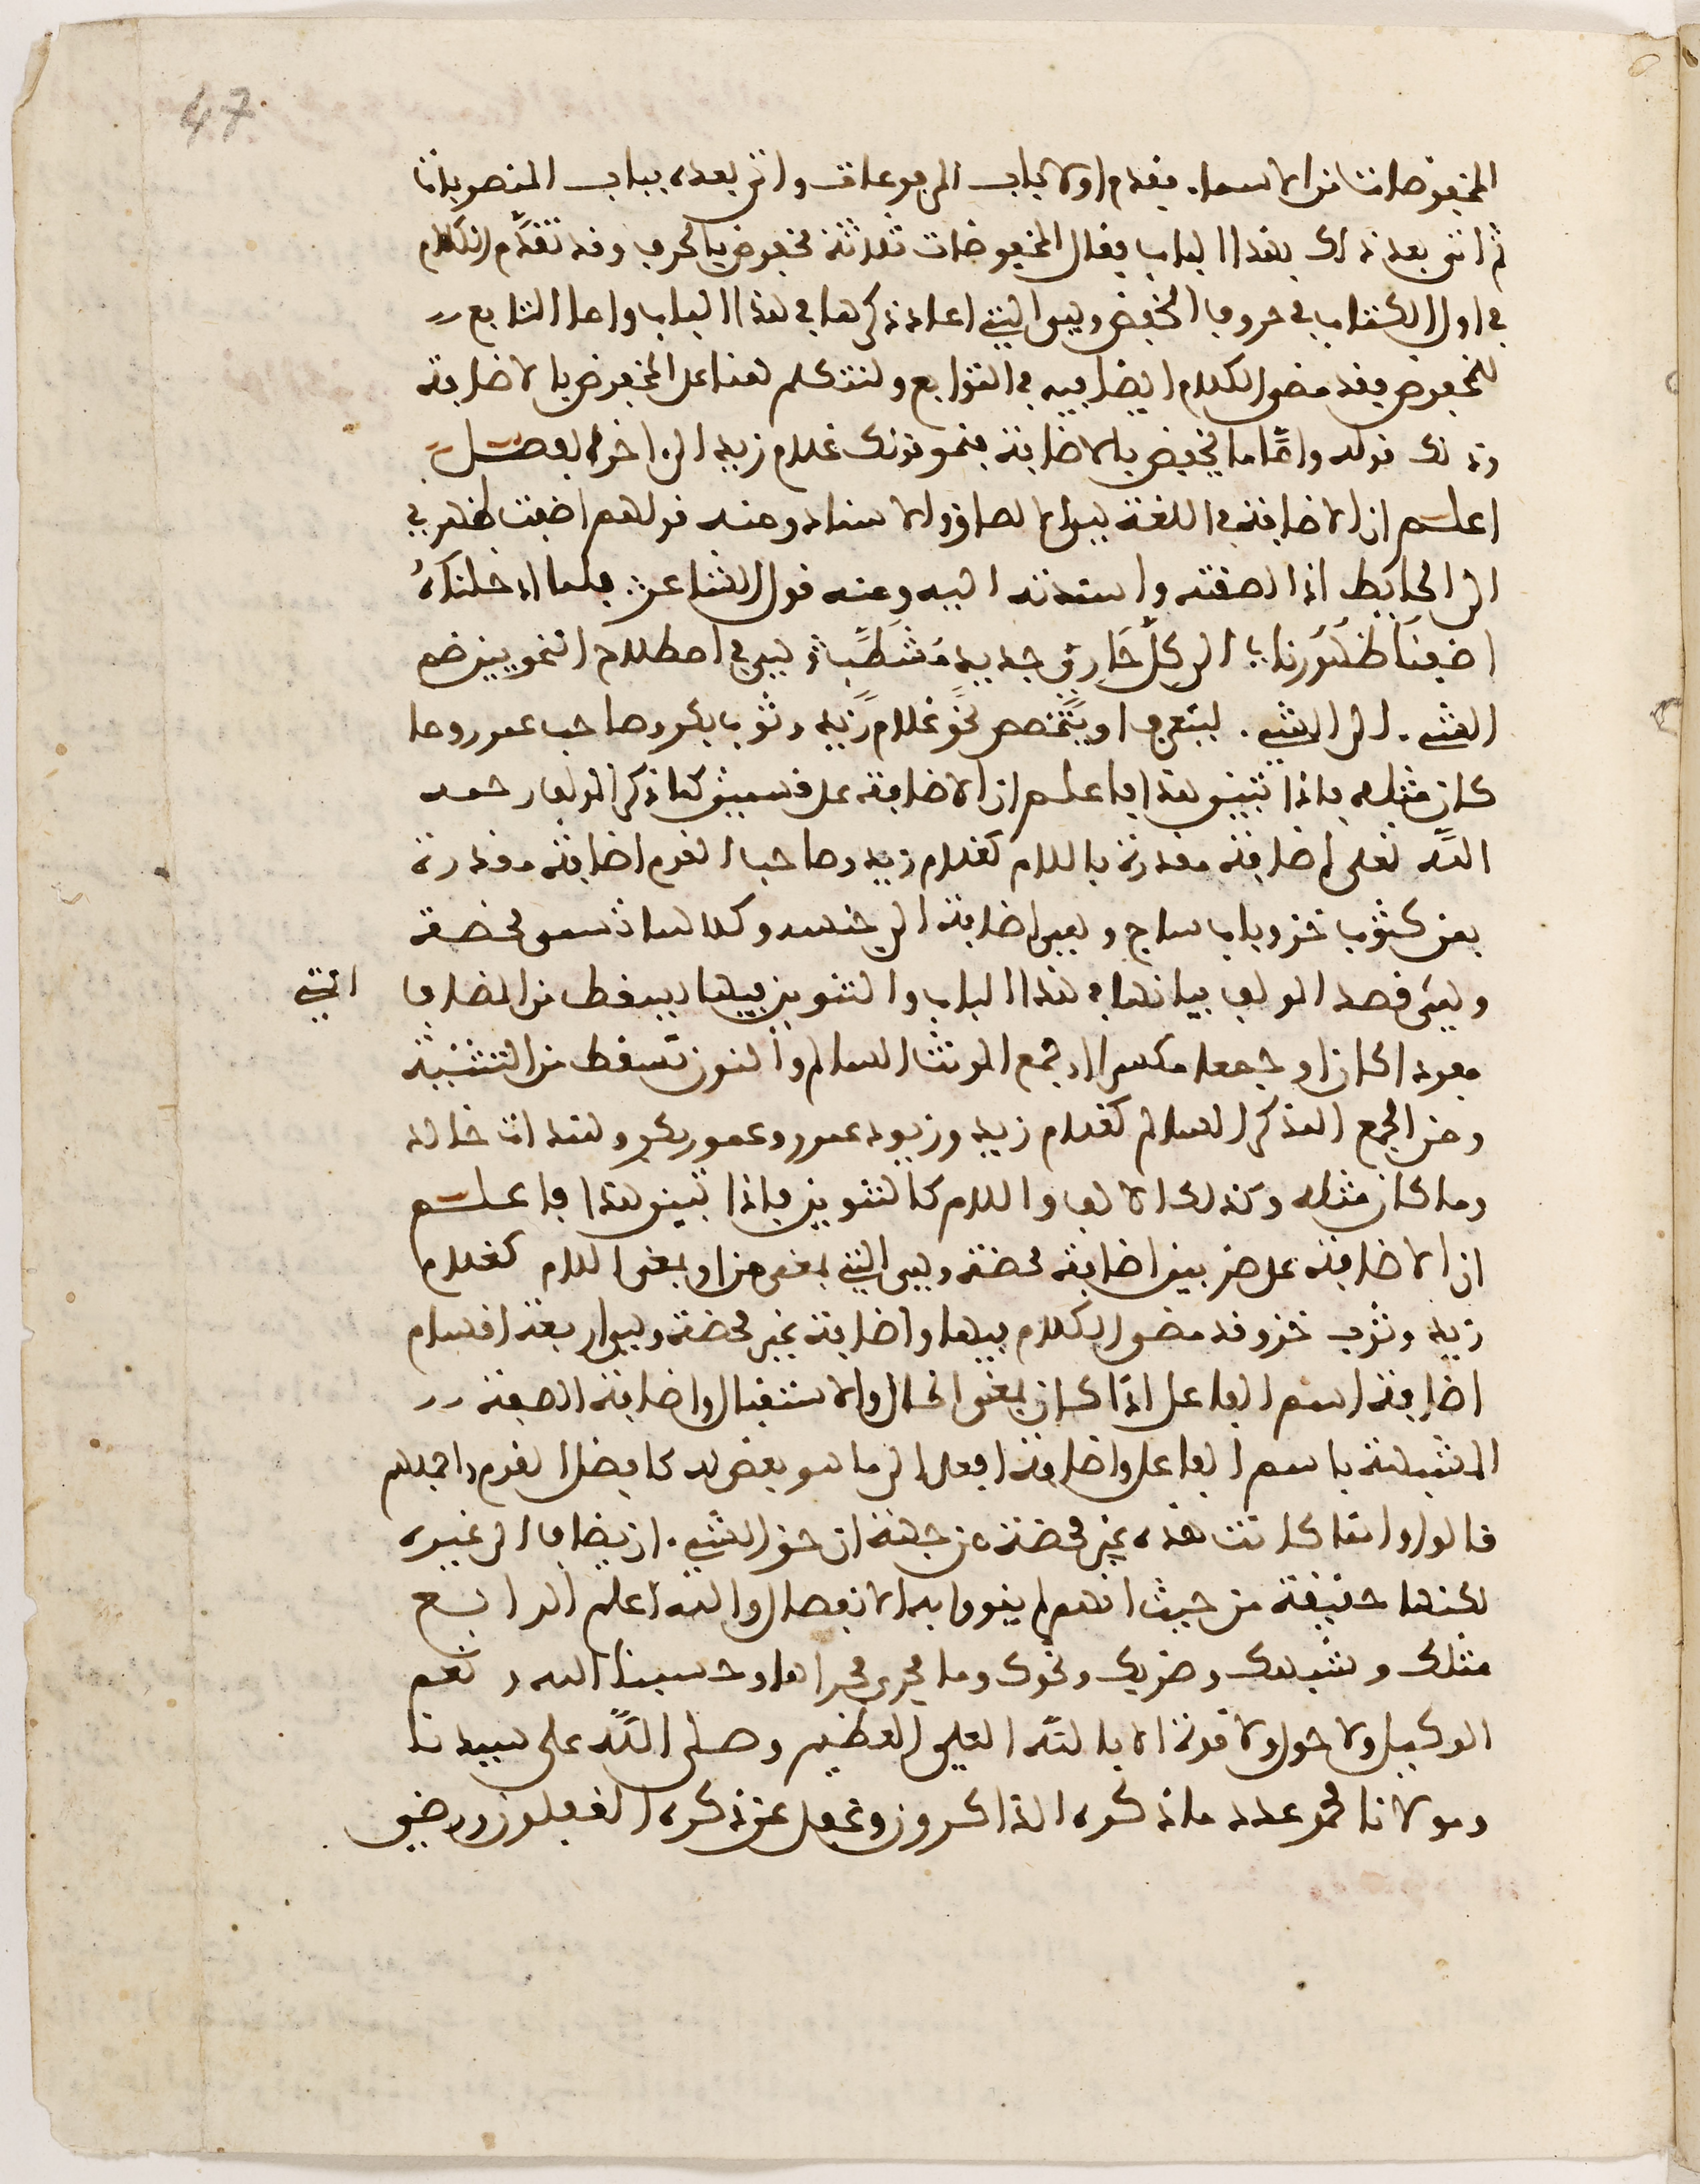 47
المخفوضات من الاسماء فقدم اولا باب المرفوعات واتى بعده بباب المنصوبات
ثم اتى بعد ذلك بهذا الباب فقال المخفوضات ثلاثة مخفوض بالحرف وقد تقدَّم الكلام
في اول الكتاب في حروف الخفض وهي التي اعاد ذكرها في هذا الباب واما التابع
للمخفوض فقد مضى الكلام ايضا فيه في التوابع ولنتكلم هنا على المخفوض بالاضافة
وذلك قوله وامَّا ما يخفض بالاضافة فنحو قولك غلام زيد الى اخره فصل
اعلم ان الاضافة في اللغة هي الالصاق والاسناد ومنه قولهم اضفت ظهري
الى الحايط اذا الصقته واسندته اليه ومنه قول الشاعر فلما ادخلناهُ
اضفنَا ظهُورنا الى كلّ حَارِيٍّ جديد مُشَطَّبِ وهي في اصطلاح النحويين ضم
الشيء الى الشيء ليتعرف او يتخصص نحو غلام زيد وثوب بكر وصاحب عمرو وما
كان مثله فاذا تبين هذا فاعلم ان الاضافة على قسمين كما ذكر المولف رحمه
اللَّه تعلى اضافة مقدرة باللام كغلام زيد وصاحب القوم اضافة مقدرة
بمن كثوب خز وباب ساج وهي اضافة الى جنسه وكلاهما تسمى محضة
وهي قصد المولف بيانها في هذا الباب والتنوين فيها يسقط من المضاف التي
مفردا كان او جمعا مكسرا او جمع المونث السالم والنون تسقط من التثنية
ومن الجمع المذكر السالم كغلام زيد وزيود عمرو وعمور بكر وهندات خالد
وما كان مثله وكذلك الالف واللام كالتنوين فاذا تبين هذا فاعلم
ان الاضافة على ضربين اضافة محضة وهي التي بمعنى من او بمعنى اللام كغلام
زيد وثوب خز وقد مضى الكلام فيها واضافة غير محضة وهي اربعة اقسام
اضافة اسم الفاعل اذا كان بمعنى الحال والاستقبال واضافة الصفة
المشبهة باسم الفاعل واضافة افعل الى ما هو بعض له كافضل القوم واجملهم
قالوا وانما كانت هذه غير محضة من جهة ان حق الشيء ان يضاف الى غيره
لكنها حقيقة من حيث انهم لم ينووا به الانفصال والله اعلم الرابع
مثلك وشبهك وضربك ونحوك وما يجري مجراها وحسبنا الله ونعم
الوكيل ولا حول ولا قوة الا باللَّه العلي العظيم وصلى اللَّه على سيدنا
ومولانا محمد عدد ما ذكره الذاكرون وغفل عن ذكره الغفلون ورضي